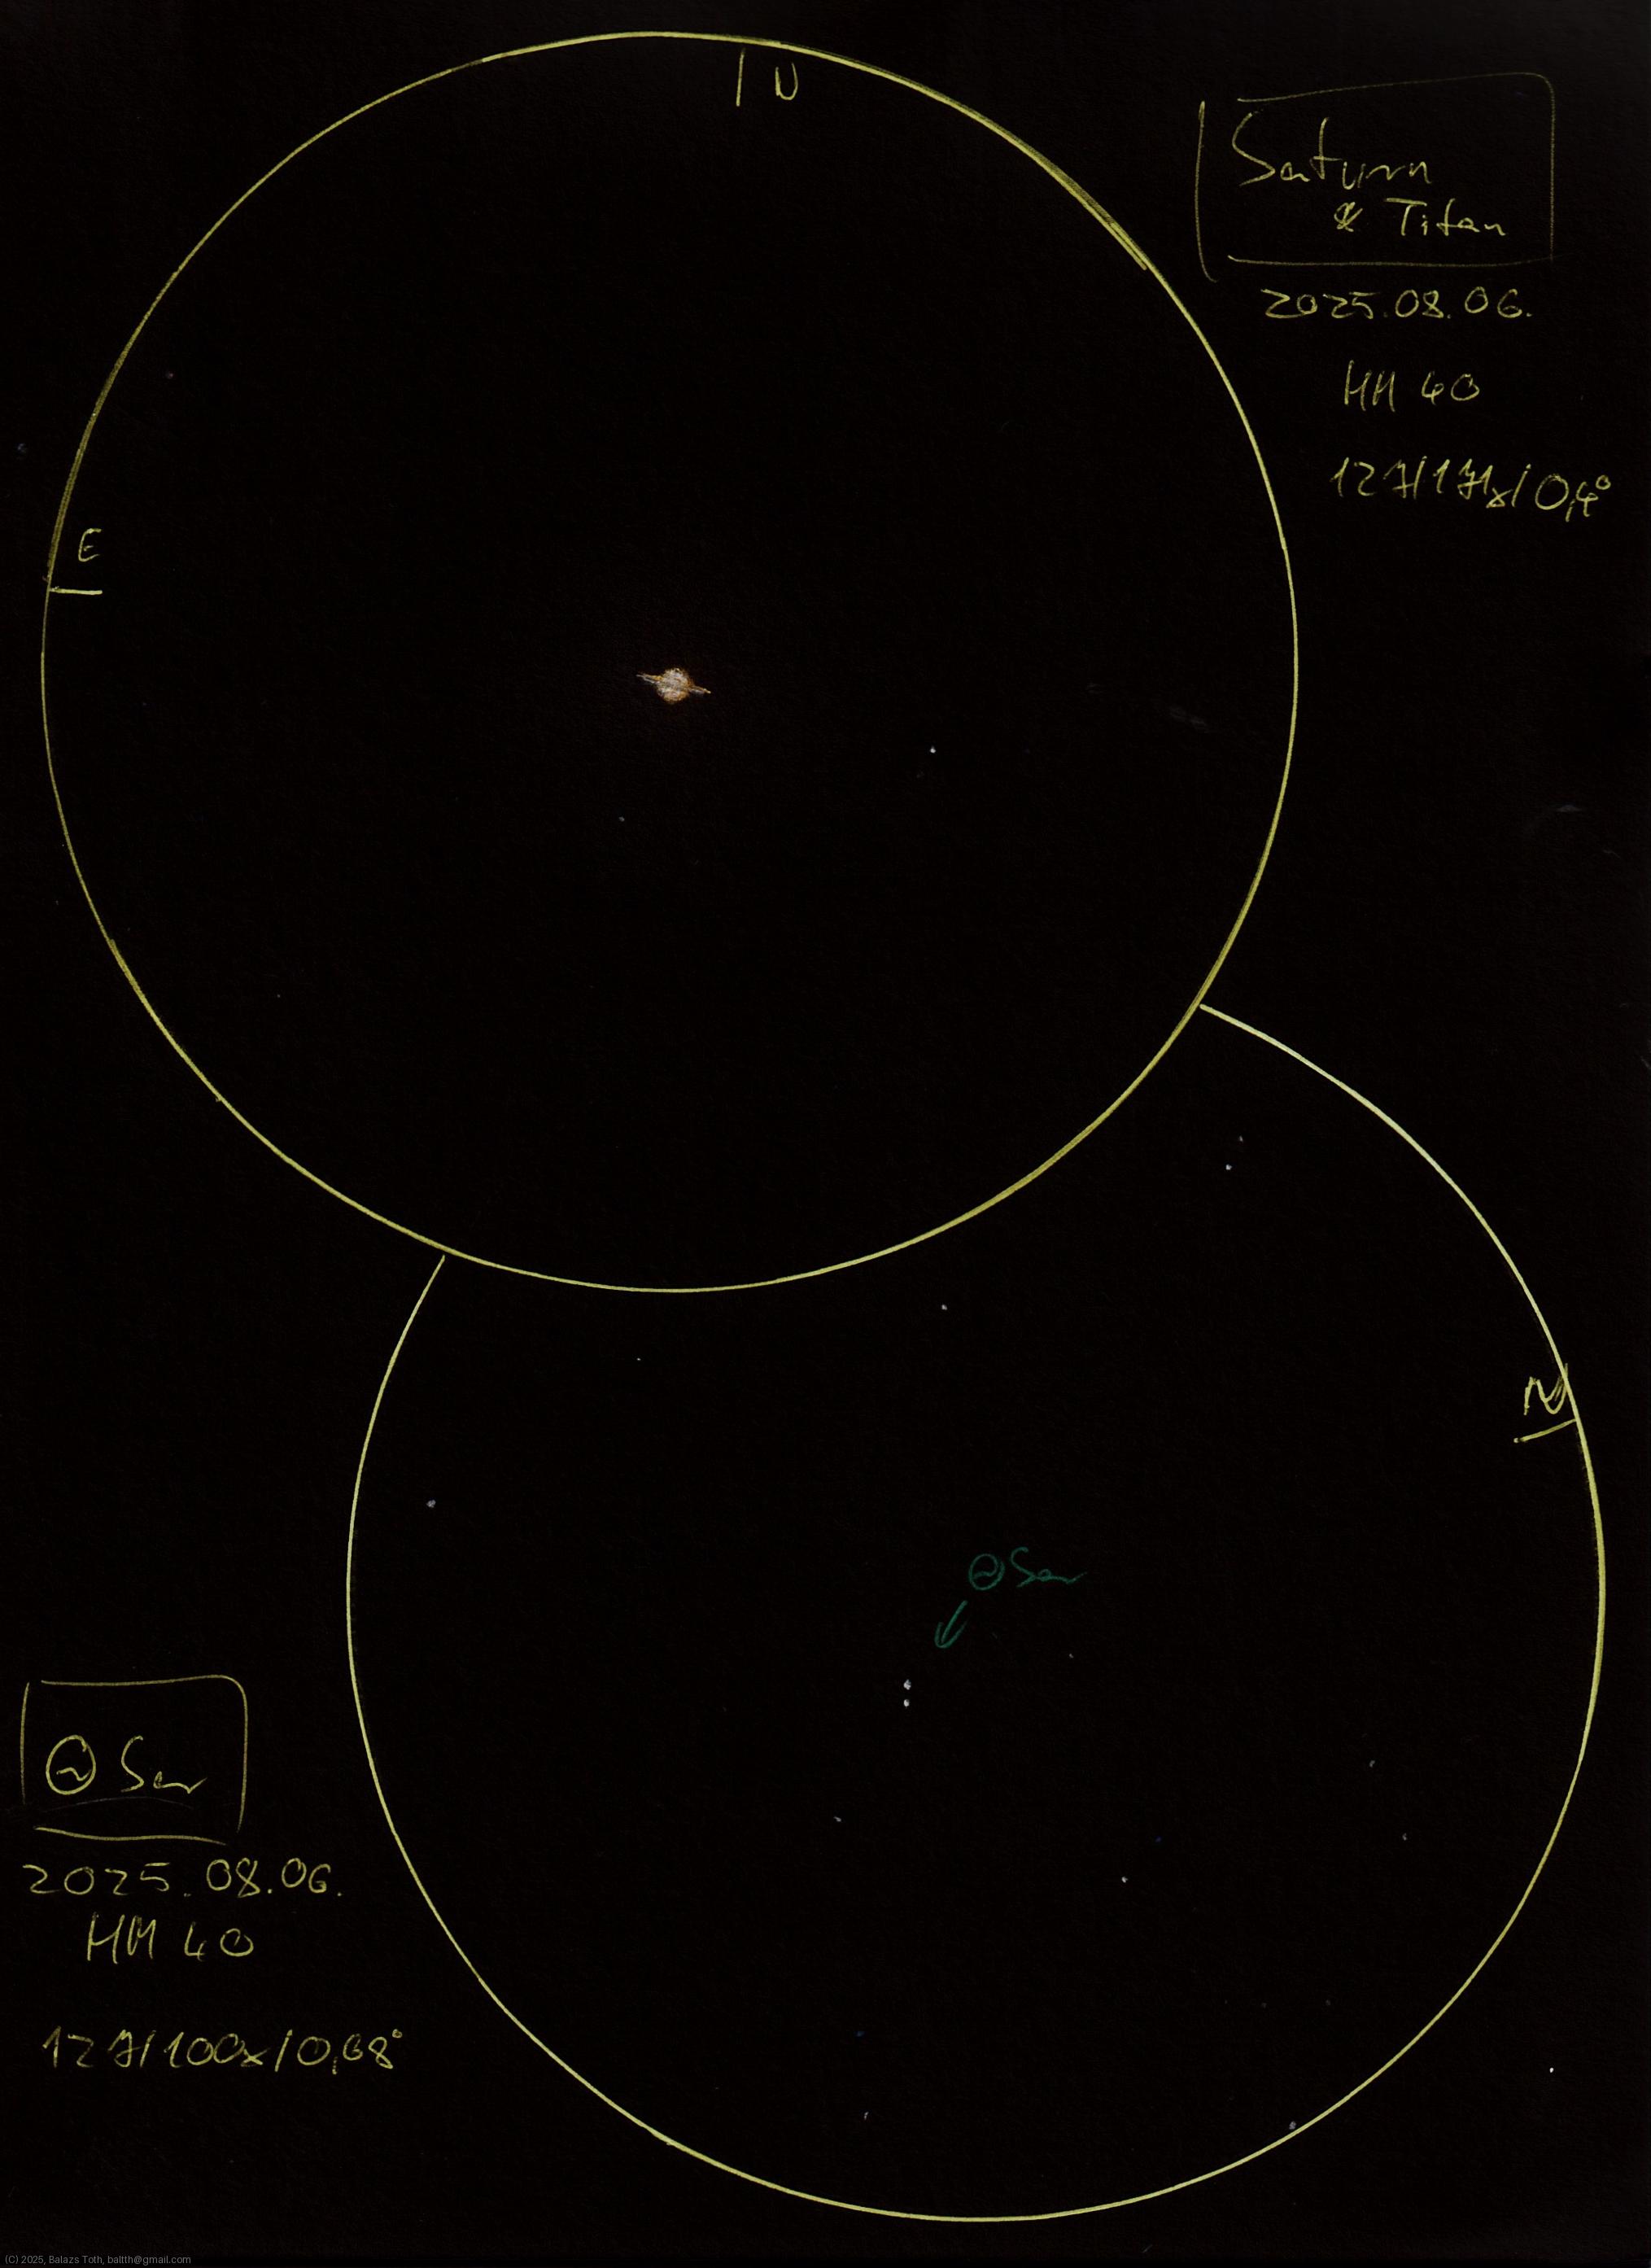 N
Saturn
& Titan
2025.08.06.
HM 40
127/171x/0,4°
E
N
Θ Ser
Θ Ser
2025.08.06.
HM 40
127/100x/0,68°
(C) 2025, Balazs Toth, baltth@gmail.com